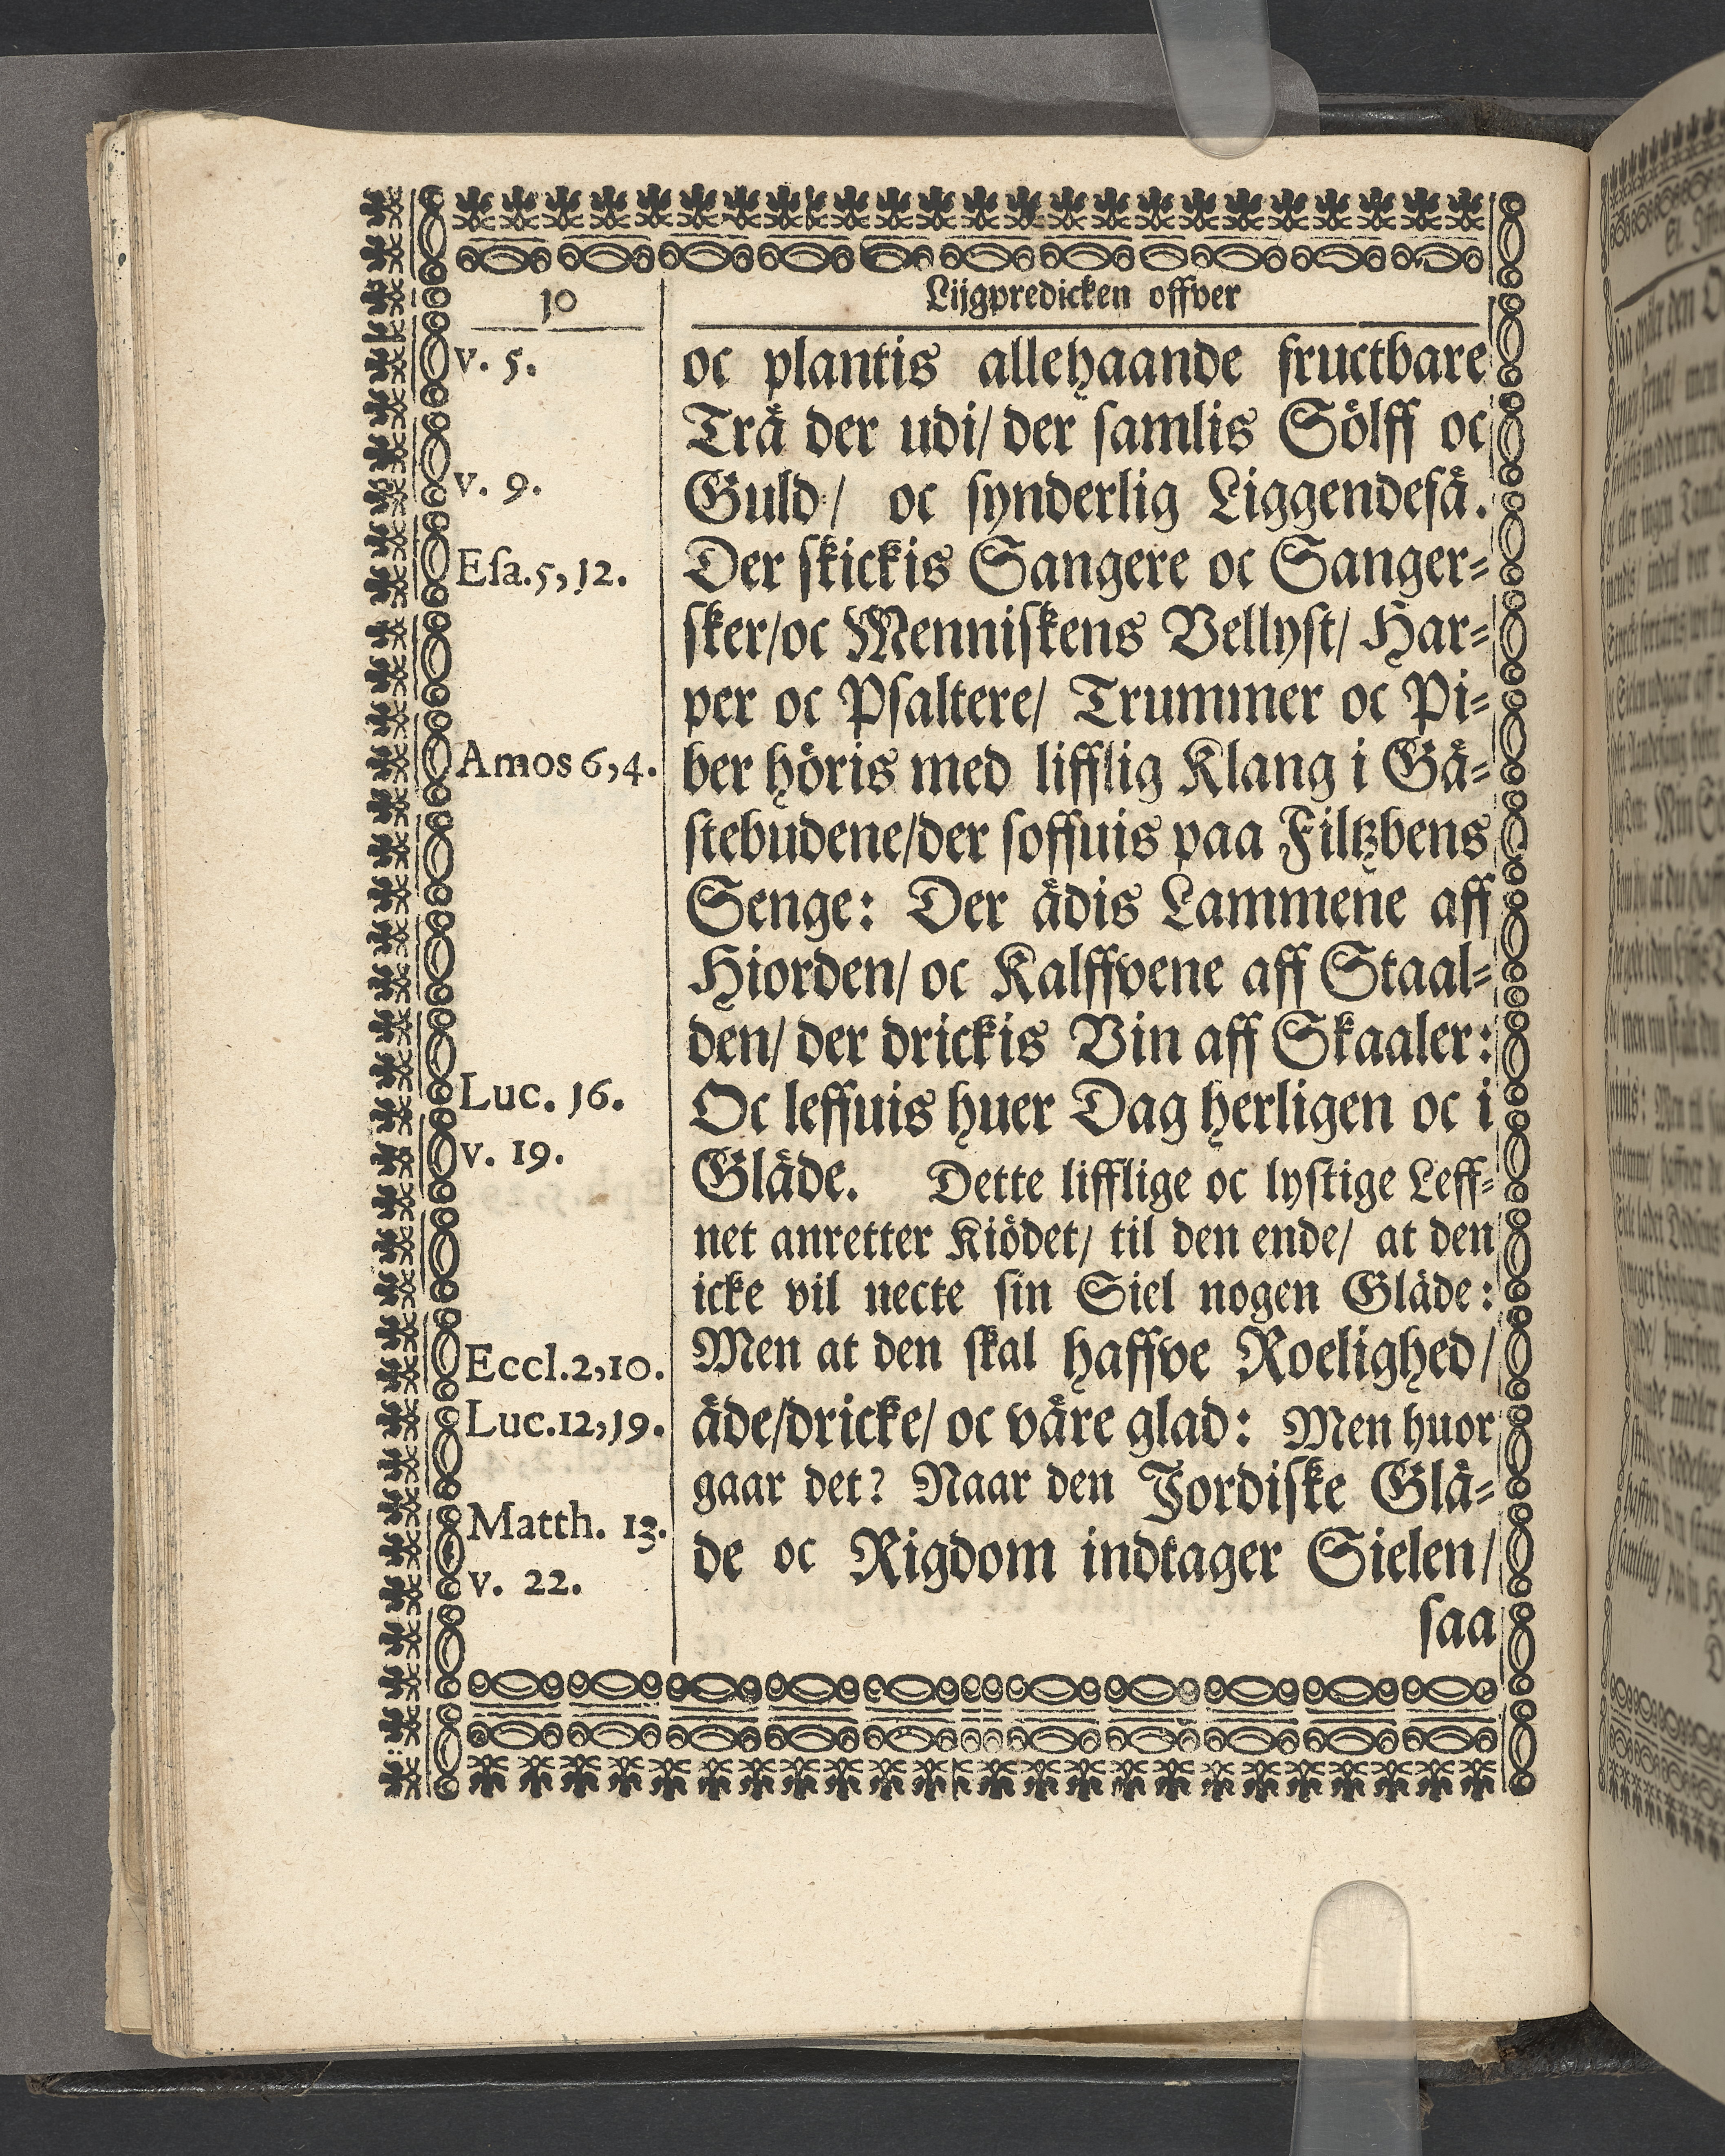 10
Lijgpredicken offver
v. 5.
v. 9.
Eſa. 5, 12.
Amos 6, 4.
Luc. 16.
v. 19.
Eccl. 2, 10.
Luc. 12, 19.
Matth. 13.
v. 22.
oc plantis allehaande fructbare
Trå der udi/ der ſamlis Sölff oc
Guld/ oc ſynderlig Liggendefå.
Der ſkickis Sangere oc Sanger-
ſker/oc Menniſkens Vellyſt/ Har-
per oc Pſaltere/ Trummer oc Pi-
ber höris med lifflig Klang i Gå-
ſtebudene/der ſoffuis paa Filtzbens
Senge: Der ådis Lammene aff
Hiorden/ oc Kalffvene aff Staal-
den/ der drickis Vin aff Skaaler:
Oc leffuis huer Dag herligen oc i
Glåde. Dette lifflige oc lyſtige Leff-
net anretter Kiödet/ til den ende/ at den
icke vil necte ſin Siel nogen Glåde:
Men at den ſkal haffve Roelighed/
åde/dricke/ oc våre glad: Men huor
gaar det? Naar den Jordiſke Glå-
de oc Rigdom indtager Sielen/
ſaa